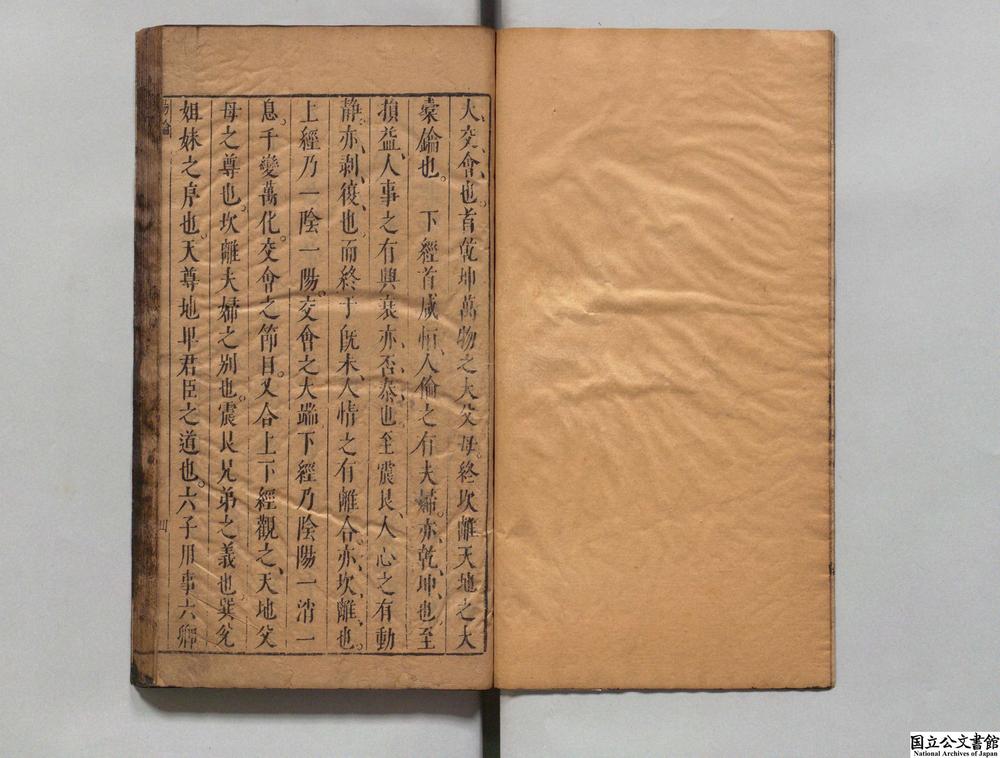 大交會也首乾坤萬物之大父母終坎離天地之大
橐鑰也。 下經首咸恒人倫之有夫婦亦乾坤也至
損益人事之有興衰亦否泰也至震艮人心之有動
靜亦剝復也而終于旣未人情之有離合亦坎離也。
上經乃一陰一陽交會之大端下經乃陰陽一消一
息千變萬化交會之節目又合上下經觀之天地父
母之尊也坎離夫婦之別也震艮兄弟之義也巽兌
姐妹之序也天尊地卑君臣之道也六子用事六卿
四
国立公文書館
National Archives of Japan